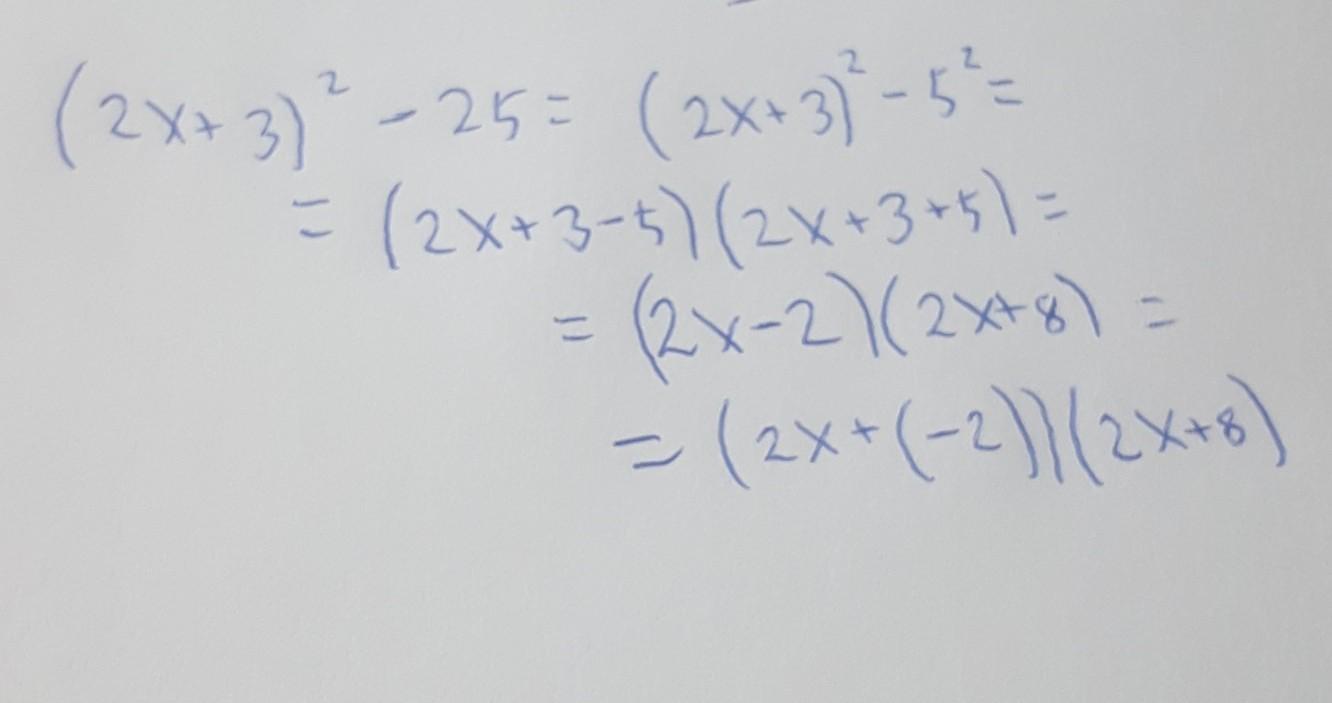 (2x+3)² - 25 = (2x+3)² - 5² =
= (2x+3-5)(2x+3+5) =
= (2x-2)(2x+8) =
= (2x+(-2))(2x+8)